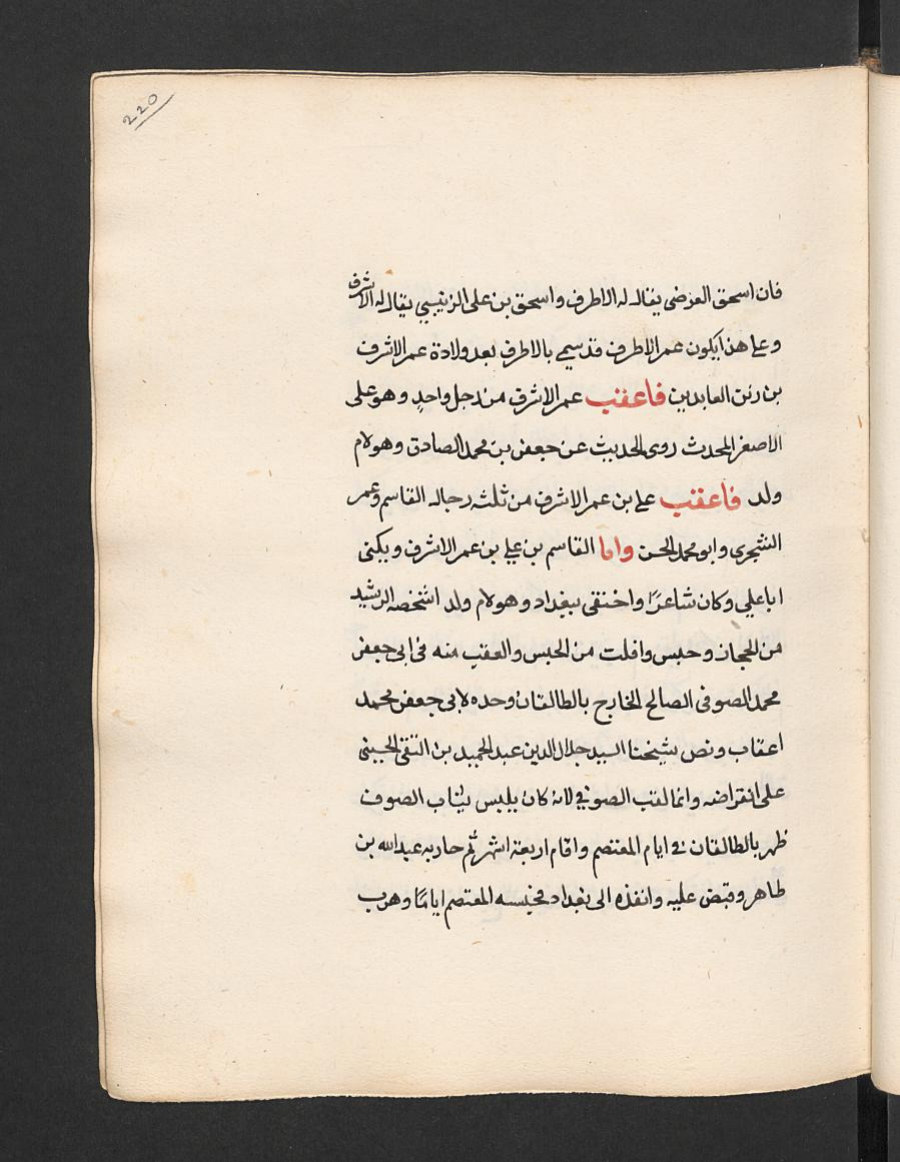 220
فان اسحق العرضى يقال له الاطرف واسحق بن على الزينبي يقال له الاشرف
وعلى هذا يكون عمر الاطرف قد سمي بالاطرف بعد ولادة عمر الاشرف
بن زين العابدين فاعقب عمر الاشرف من رجل واحد وهو على
الاصغر المحدث روى الحديث عن جعفر بن محمد الصادق وهو لام
ولد فاعقب على بن عمر الاشرف من ثلثه رجال القاسم وعمر
الشجرى وابو محمد الحسن واما القاسم بن علي بن عمر الاشرف ويكنى
ابا علي وكان شاعرًا واختفى ببغداد وهو لام ولد اشخصه الرشيد
من الحجاز وحبس وافلت من الحبس والعقب منه فى ابى جعفر
محمد الصوفى الصالح الخارج بالطالقان وحده لابى جعفر محمد
اعقاب ونص شيخنا السيد جلال الدين عبد الحميد بن التقى الحسينى
على انقراضه وانما لقب الصوفي لانه كان يلبس ثياب الصوف
ظهر بالطالقان في ايام المعتصم واقام اربعة اشهر ثم حاربه عبد الله بن
طاهر وقبض عليه وانفذه الى بغداد فحبسه المعتصم ايامًا وهرب